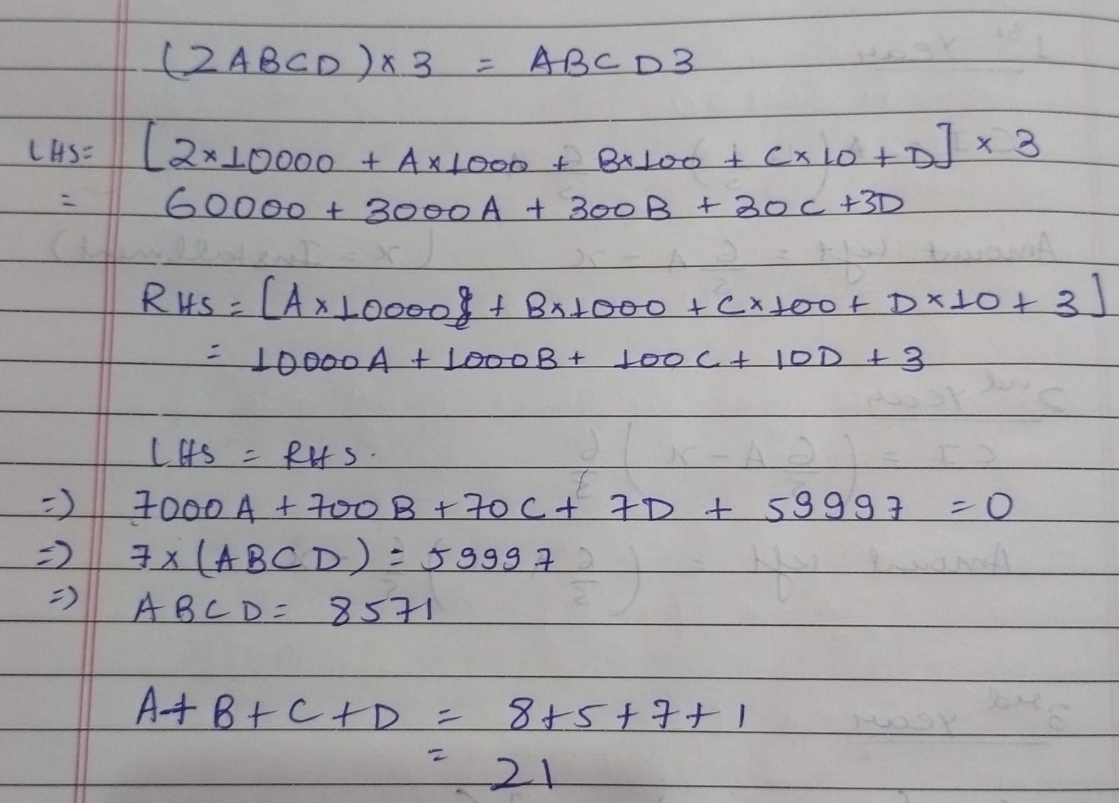 (2ABCD)×3 = ABCD3
LHS= [2×10000 + A×1000 + B×100 + C×10 + D] × 3
= 60000 + 3000A + 300B + 30C + 3D
RHS = [A×10000 + B×1000 + C×100 + D×10 + 3]
= 10000A + 1000B + 100C + 10D + 3
LHS = RHS.
=) 7000A + 700B + 70C + 7D + 59997 = 0
=) 7×(ABCD) = 59997
=) ABCD = 8571
A+B+C+D = 8+5+7+1
= 21